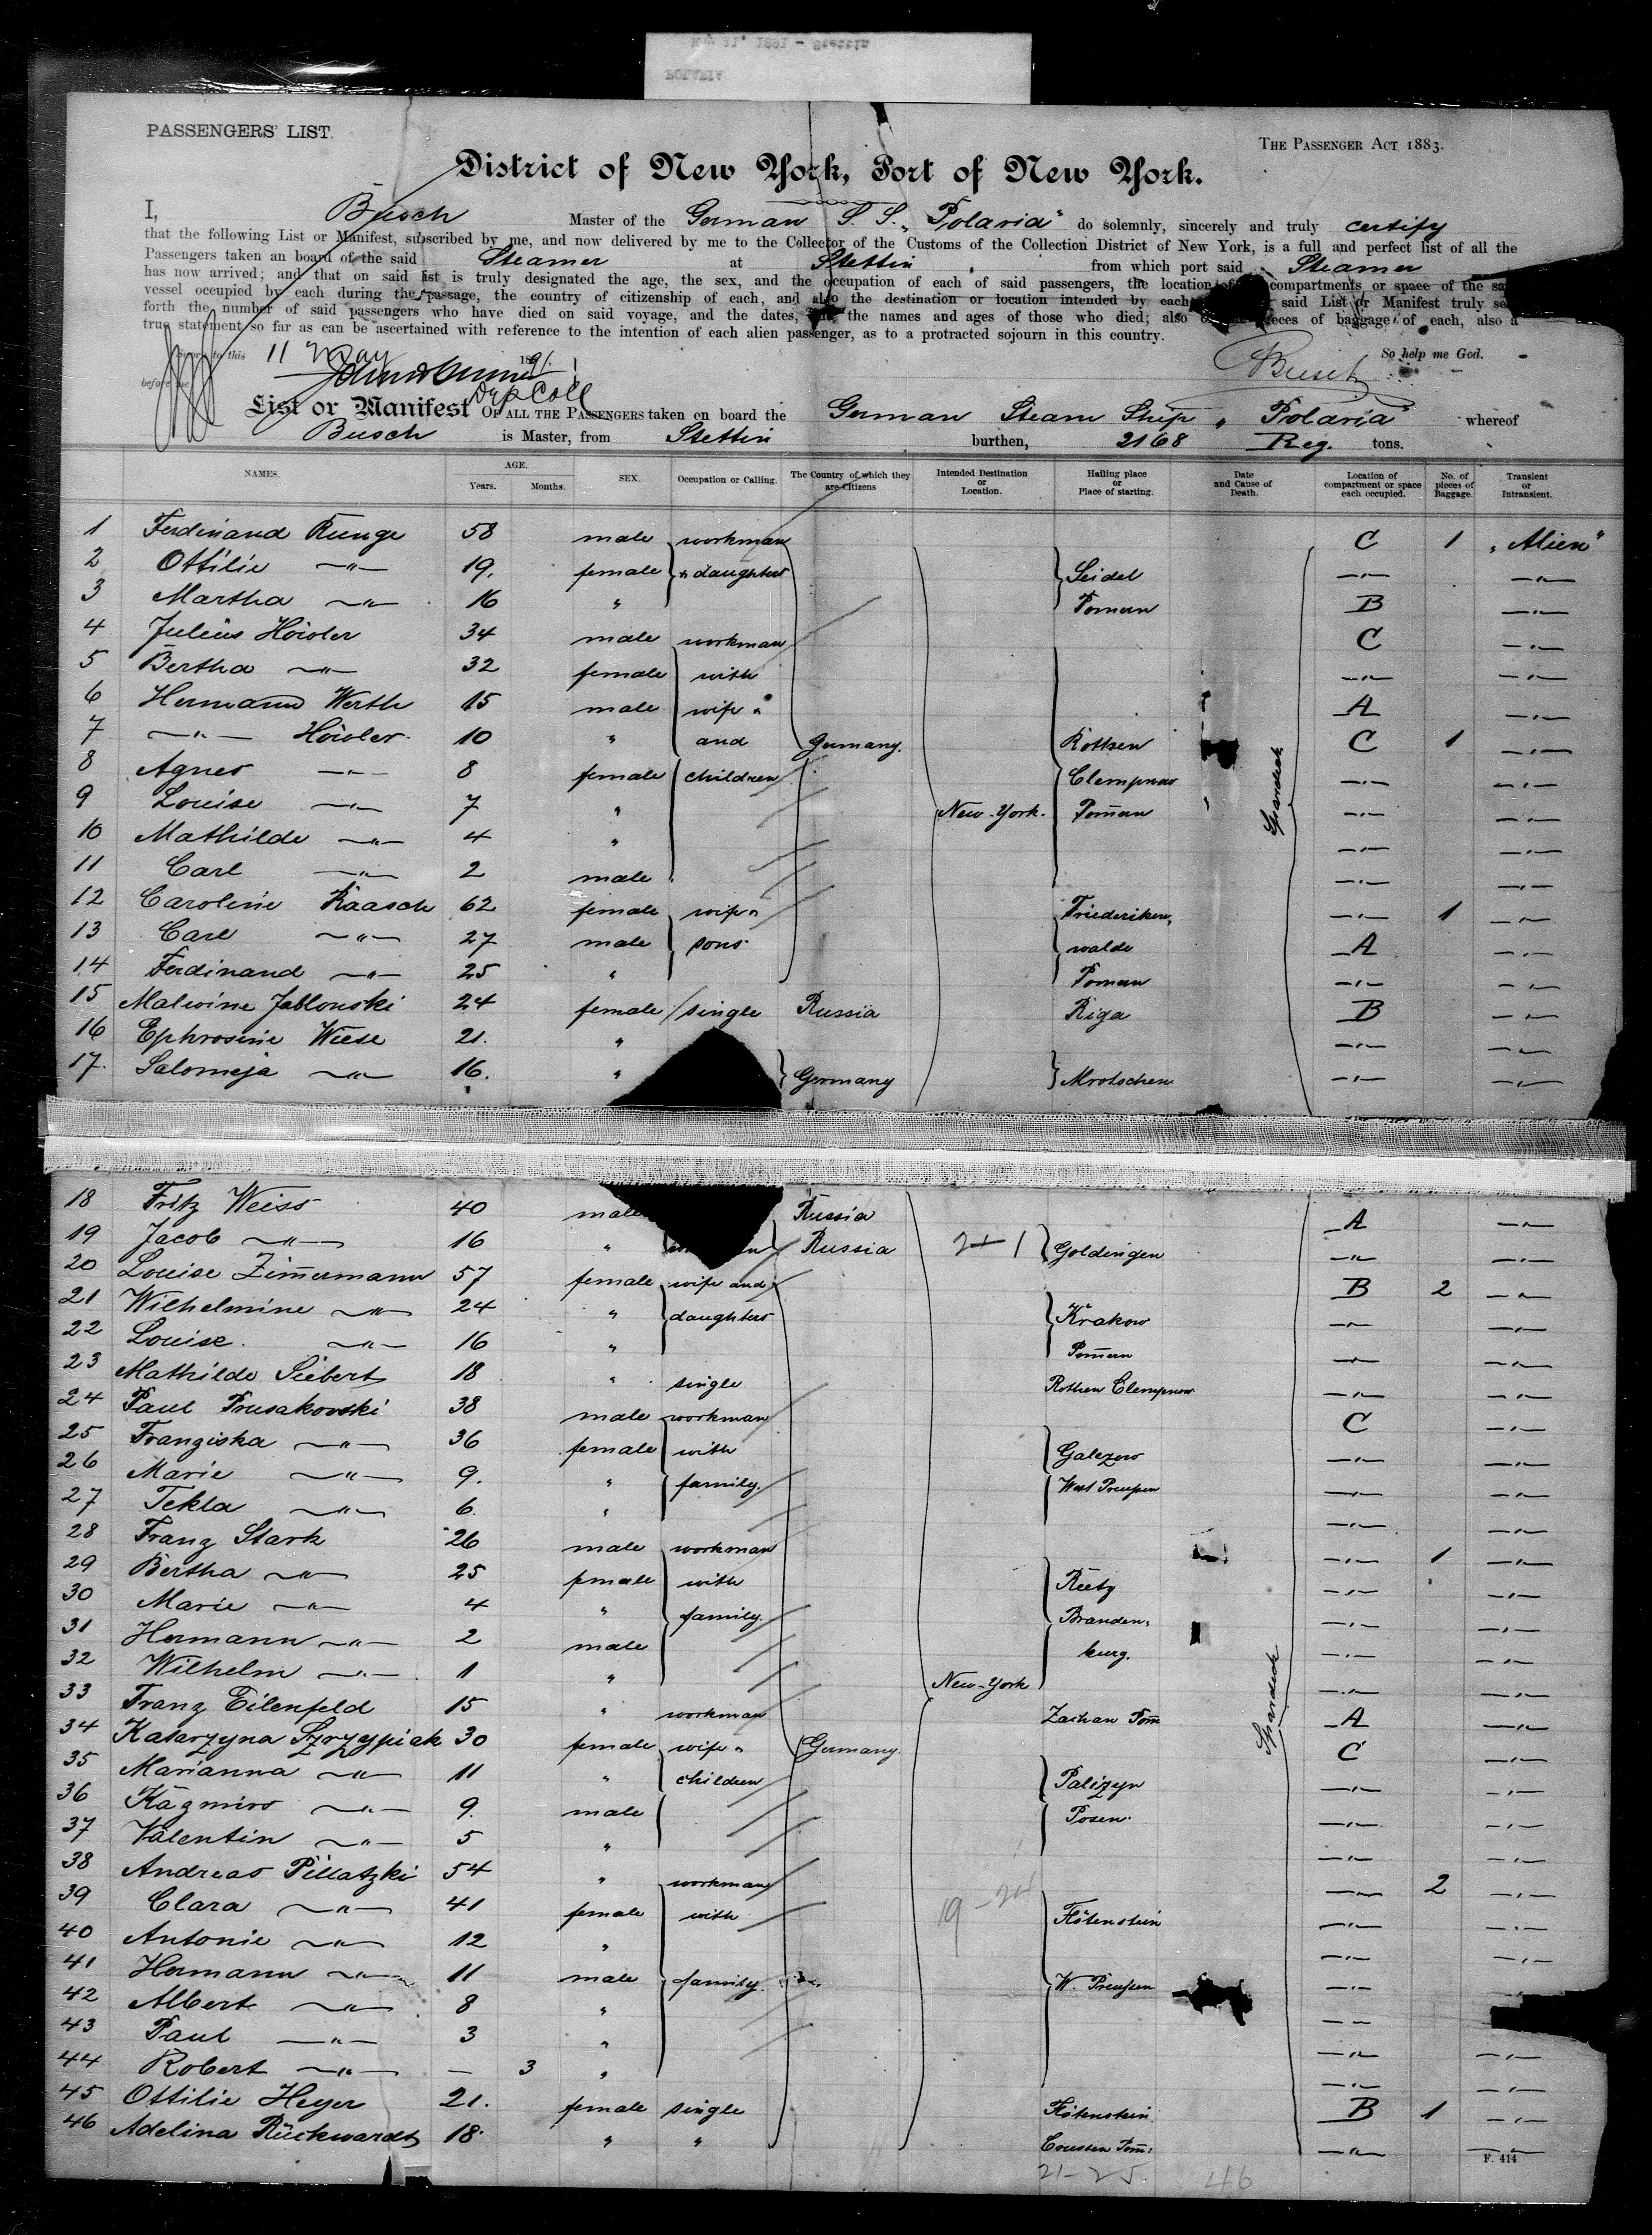 PASSENGERS' LIST.
THE PASSENGER ACT 1883.
District of New York, Port of New York.
I, Busch Master of the German S. S. „Polaria" do solemnly, sincerely and truly certify
that the following List or Manifest, subscribed by me, and now delivered by me to the Collector of the Customs of the Collection District of New York, is a full and perfect list of all the
Passengers taken on board of the said Steamer at Stettin, from which port said Steamer
has now arrived; and that on said list is truly designated the age, the sex, and the occupation of each of said passengers, the location of compartments or space of the
vessel occupied by each during the passage, the country of citizenship of each, and also the destination or location intended by each said List or Manifest truly
forth the number of said passengers who have died on said voyage, and the dates, the names and ages of those who died; also of baggage of each, also a
true statement so far as can be ascertained with reference to the intention of each alien passenger, as to a protracted sojourn in this country.
to this 11 May 1891. So help me God.
before me Busch
Dep Coll
List or Manifest OF ALL THE PASSENGERS taken on board the German Steam Ship „Polaria" whereof
Busch is Master, from Stettin burthen, 2168 Reg. tons.
NAMES. AGE. Years. Months. SEX. Occupation or Calling. The Country of which they are Citizens Intended Destination or Location. Hailing place or Place of starting. Date and Cause of Death. Location of compartment or space each occupied. No. of pieces of Baggage. Transient or Intransient.
1 Ferdinand Runge 58 male workman C 1 „Alien"
2 Ottilie —"— 19. female " daughters Seidel —"— —"—
3 Martha —"— 16 " Pomern B —"—
4 Julius Höwler 34 male workman C —"—
5 Bertha —"— 32 female with —"— —"—
6 Hermann Werth 15 male wife " A —"—
7 —"— Höwler 10 " and Germany. Rothen C 1 —"—
8 Agnes —"— 8 female children Clempnow —"— —"—
9 Louise —"— 7 " New-York. Pom̄ern —"— —"—
10 Mathilde —"— 4 " —"— —"—
11 Carl —"— 2 male —"— —"—
12 Caroline Raasch 62 female wife " Friederiken, —"— 1 —"—
13 Carl —"— 27 male sons walde A —"—
14 Ferdinand —"— 25 " Pomern —"— —"—
15 Malwine Jablonski 24 female single Russia Riga B —"—
16 Ephrosine Wiese 21. " —"— —"—
17. Salomeja —"— 16. " Germany Mrotschen —"— —"—
18 Fritz Weiss 40 male Russia A —"—
19 Jacob —"— 16 " Russia Goldingen —"— —"—
20 Louise Zim̄ermann 57 female wife and B 2 —"—
21 Wilhelmine —"— 24 " daughters Krakow —"— —"—
22 Louise. —"— 16 " Pom̄ern —"— —"—
23 Mathilde Siebert 18 " single Rothen Clempnow —"— —"—
24 Paul Prusakowski 38 male workman C —"—
25 Franziska —"— 36 female with Galezow —"— —"—
26 Marie —"— 9. " family. West Preußen —"— —"—
27 Tekla —"— 6. " —"— —"—
28 Franz Stark 26 male workman —"— 1 —"—
29 Bertha —"— 25 female with Reetz —"— —"—
30 Marie —"— 4 " family. Branden, —"— —"—
31 Hermann —"— 2 male burg. —"— —"—
32 Wilhelm —"— 1 " New-York —"— —"—
33 Franz Eilenfeld 15 " workman Zachan Pom̄ A —"—
34 Katarzyna Szrzypiak 30 female wife " Germany. C —"—
35 Marianna —"— 11 " children Palizyn —"— —"—
36 Kazmiro —"— 9. male Posen. —"— —"—
37 Valentin —"— 5 " —"— —"—
38 Andreas Pillatzki 54 " workman —"— 2 —"—
39 Clara —"— 41 female with Flötenstein —"— —"—
40 Antonie —"— 12 " —"— —"—
41 Hermann —"— 11 male family. W. Preußen —"—
42 Albert —"— 8 " —"—
43 Paul —"— 3 " —"— —"—
44 Robert —"— — 3 " —"— —"—
45 Ottilie Heyer 21. female single Flötenstein B 1 —"—
46 Adelina Rückwardt 18. " " Coussen Pom̄: —"— —"—
F. 414
21-25. 46